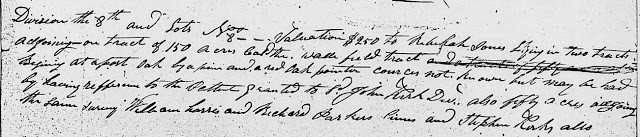 Division the 8th and Lots No 8 - - Valuation $250 to Rebekah Jones Lying in two tracts
adjoining on tract of 150 acres Call the walle field tract
Begining at a post Oak by a pine and a red Oak pointer cources not known but may be had
by having refferrence to the Pattent granted to John Kirk Decr. also fifty acres adjoying
the same Joining William Harris and Richard Parkers lines and Stephen Kirks also